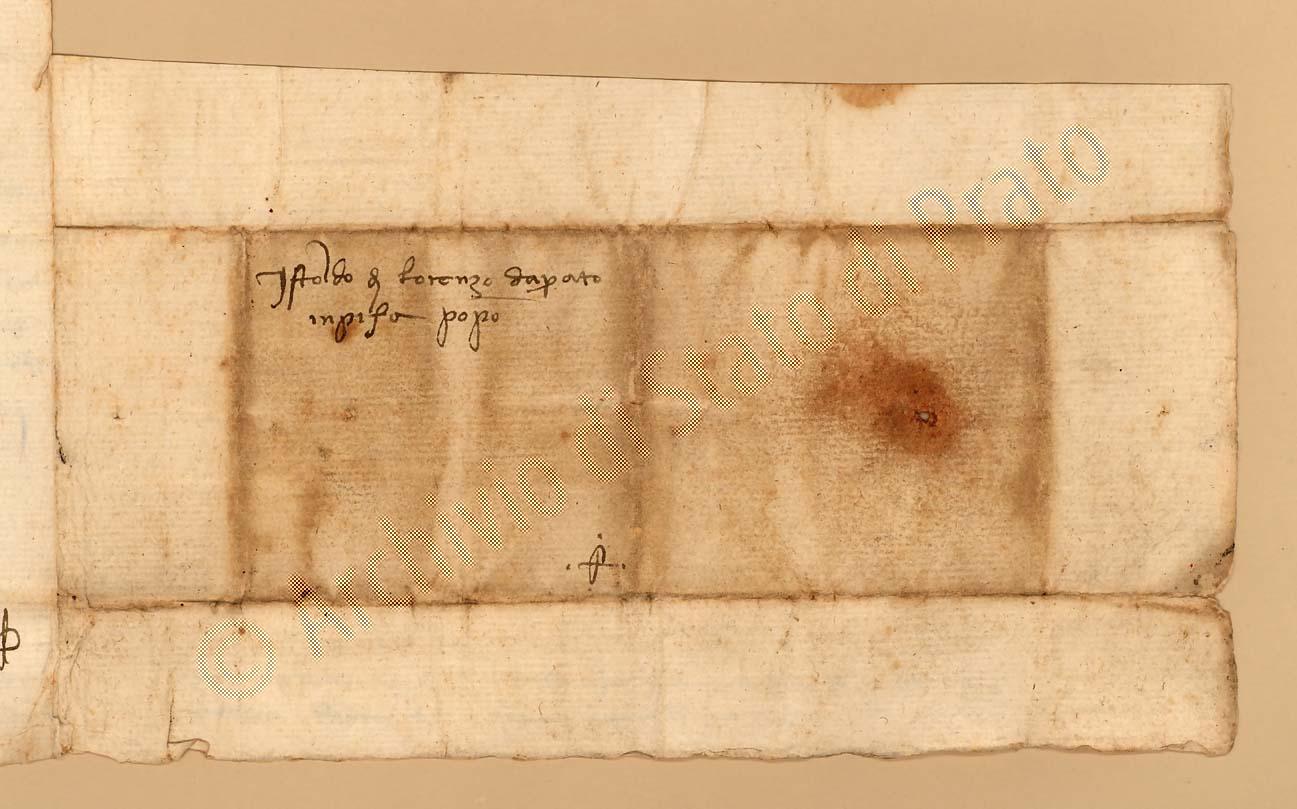 Istoldo di Lorenzo da Prato
in Pisa propio
© Archivio di Stato di Prato